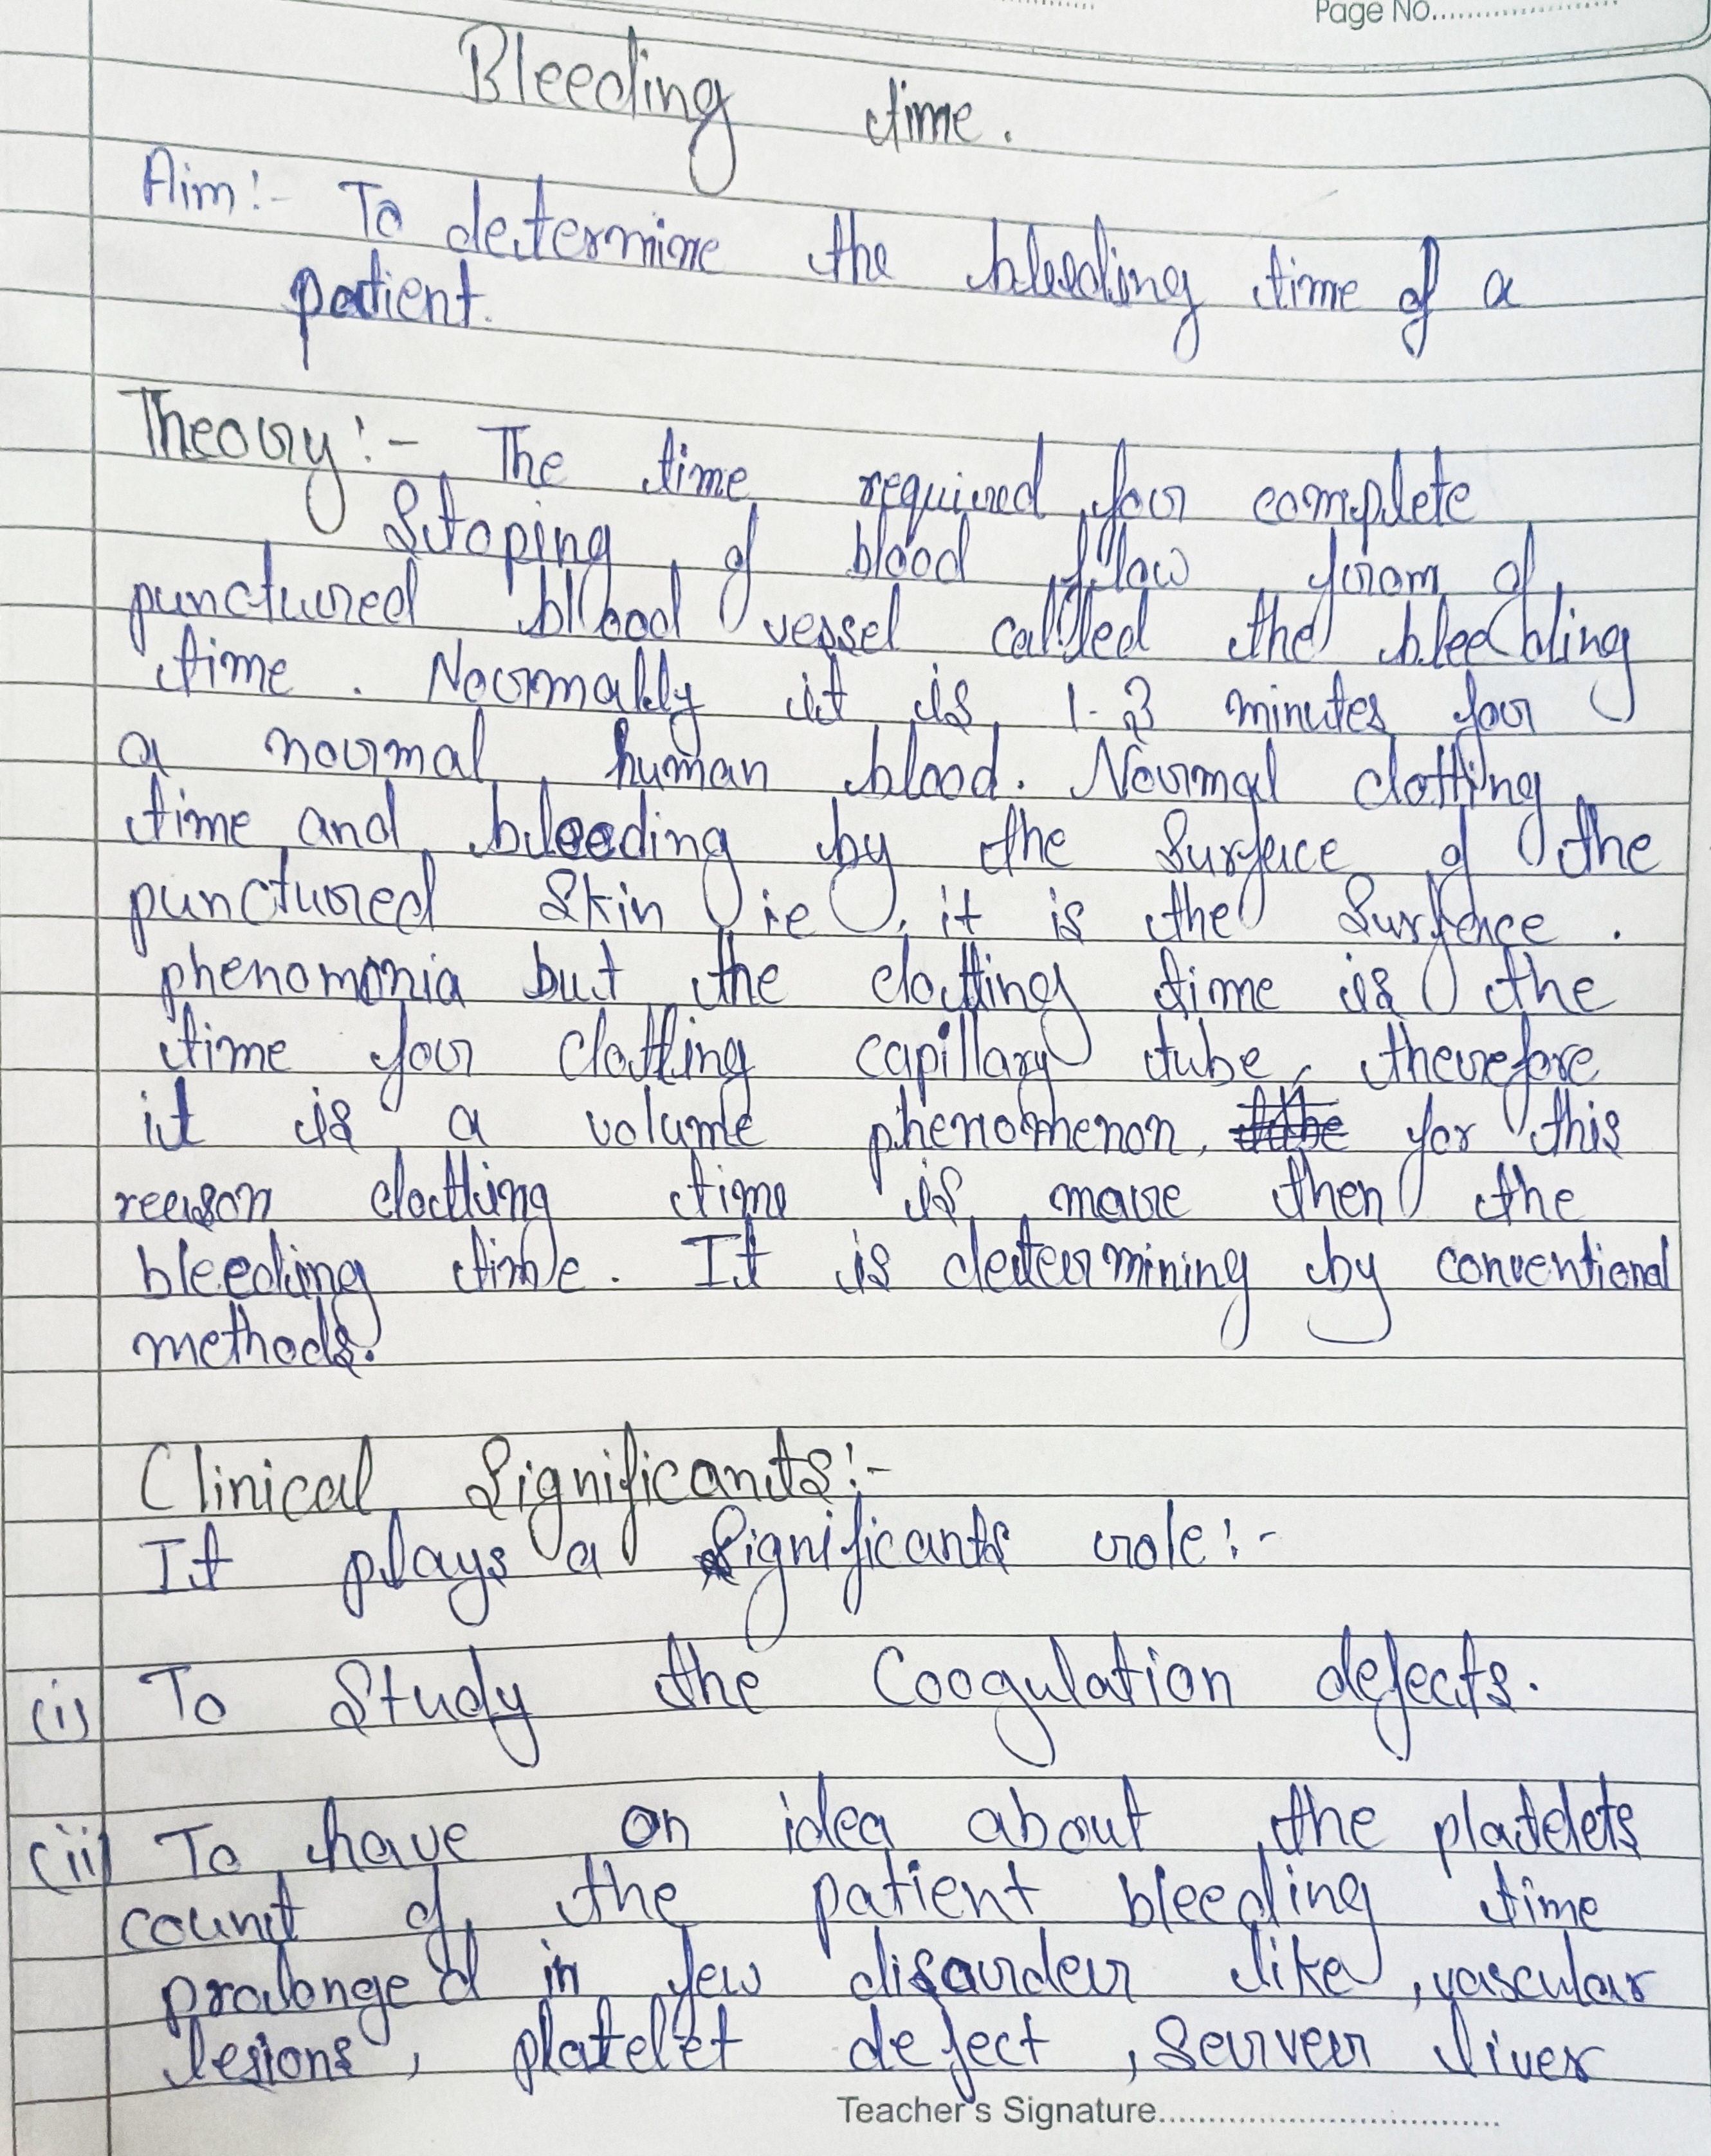 Page No.
Bleeding time.
Aim:- To determine the bleeding time of a
patient.
Theory:- The time required for complete
Stoping of blood flow from of
punctured blood vessel called the bleebling
time. Normally it is 1-3 minutes for
a normal human blood. Normal clotting
time and bleeding by the Surface of the
punctured Skin ie, it is the Surface.
phenomonia but the clotting time is the
time for clotting capillary tube, therefore
it is a volume phenomenon, for this
reason clotting time is more then the
bleeding time. It is determining by conventional
methods.
Clinical Significants:-
It plays a Significants role:-
(i) To Study the Coogulation defects.
(ii) To have on idea about the platelets
count of the patient bleeding time
prolonged in few disorder like, vascular
lesions, platelet defect, Server liver
Teacher's Signature